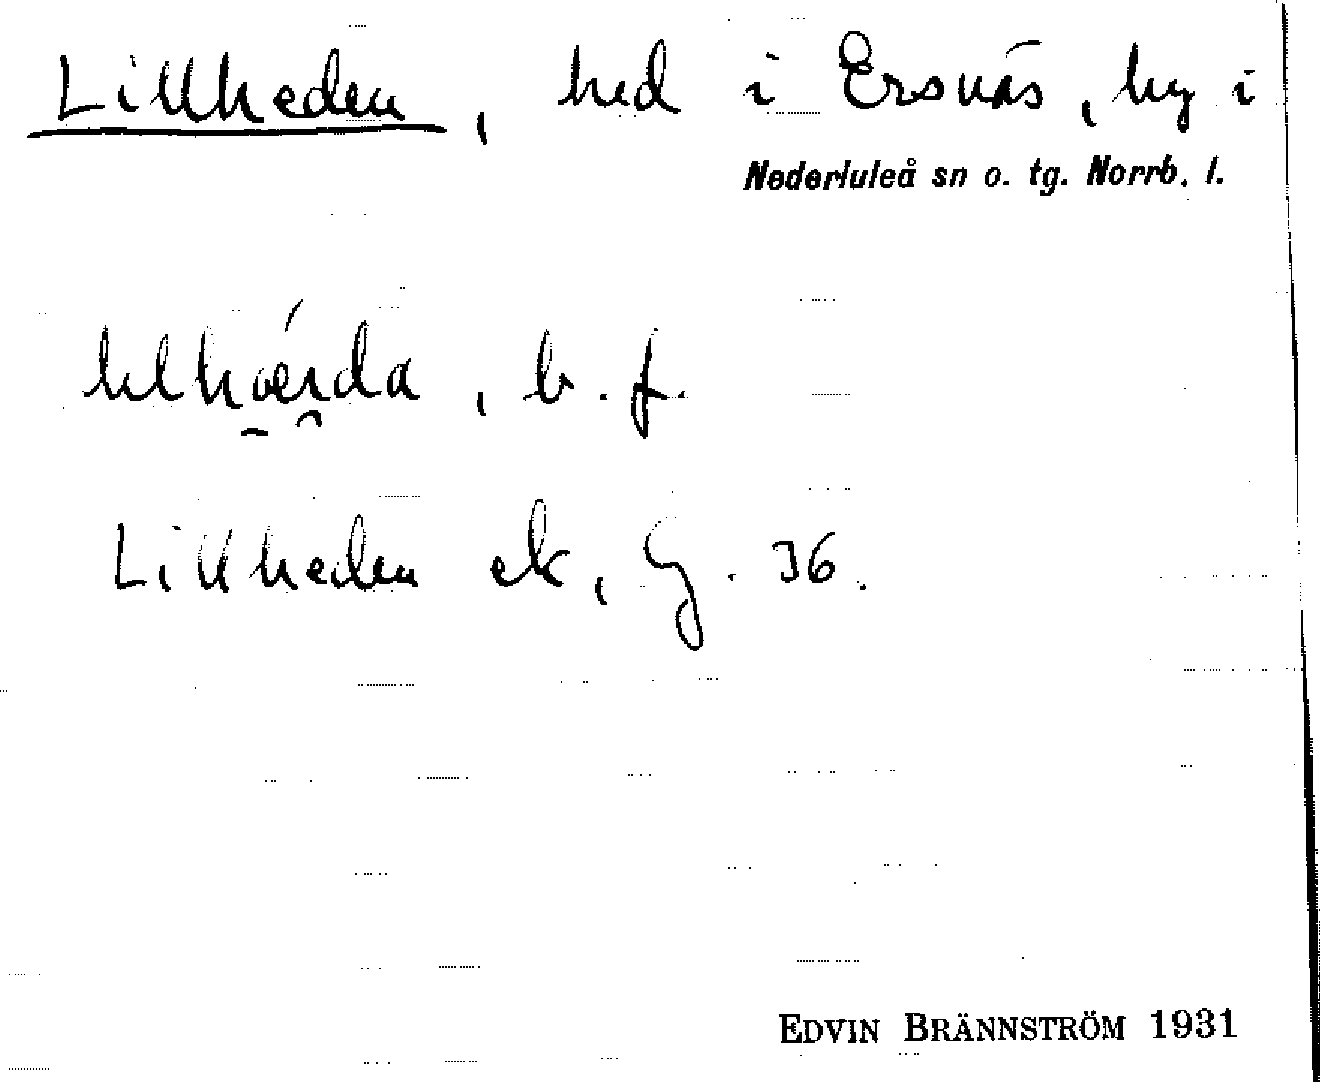 Lillheden, hed i Ersnäs, by i
Nederluleå sn o. tg. Norrb. l.
b. f.
Lillheden ek, G. 36.
EDVIN BRÄNNSTRÖM 1931